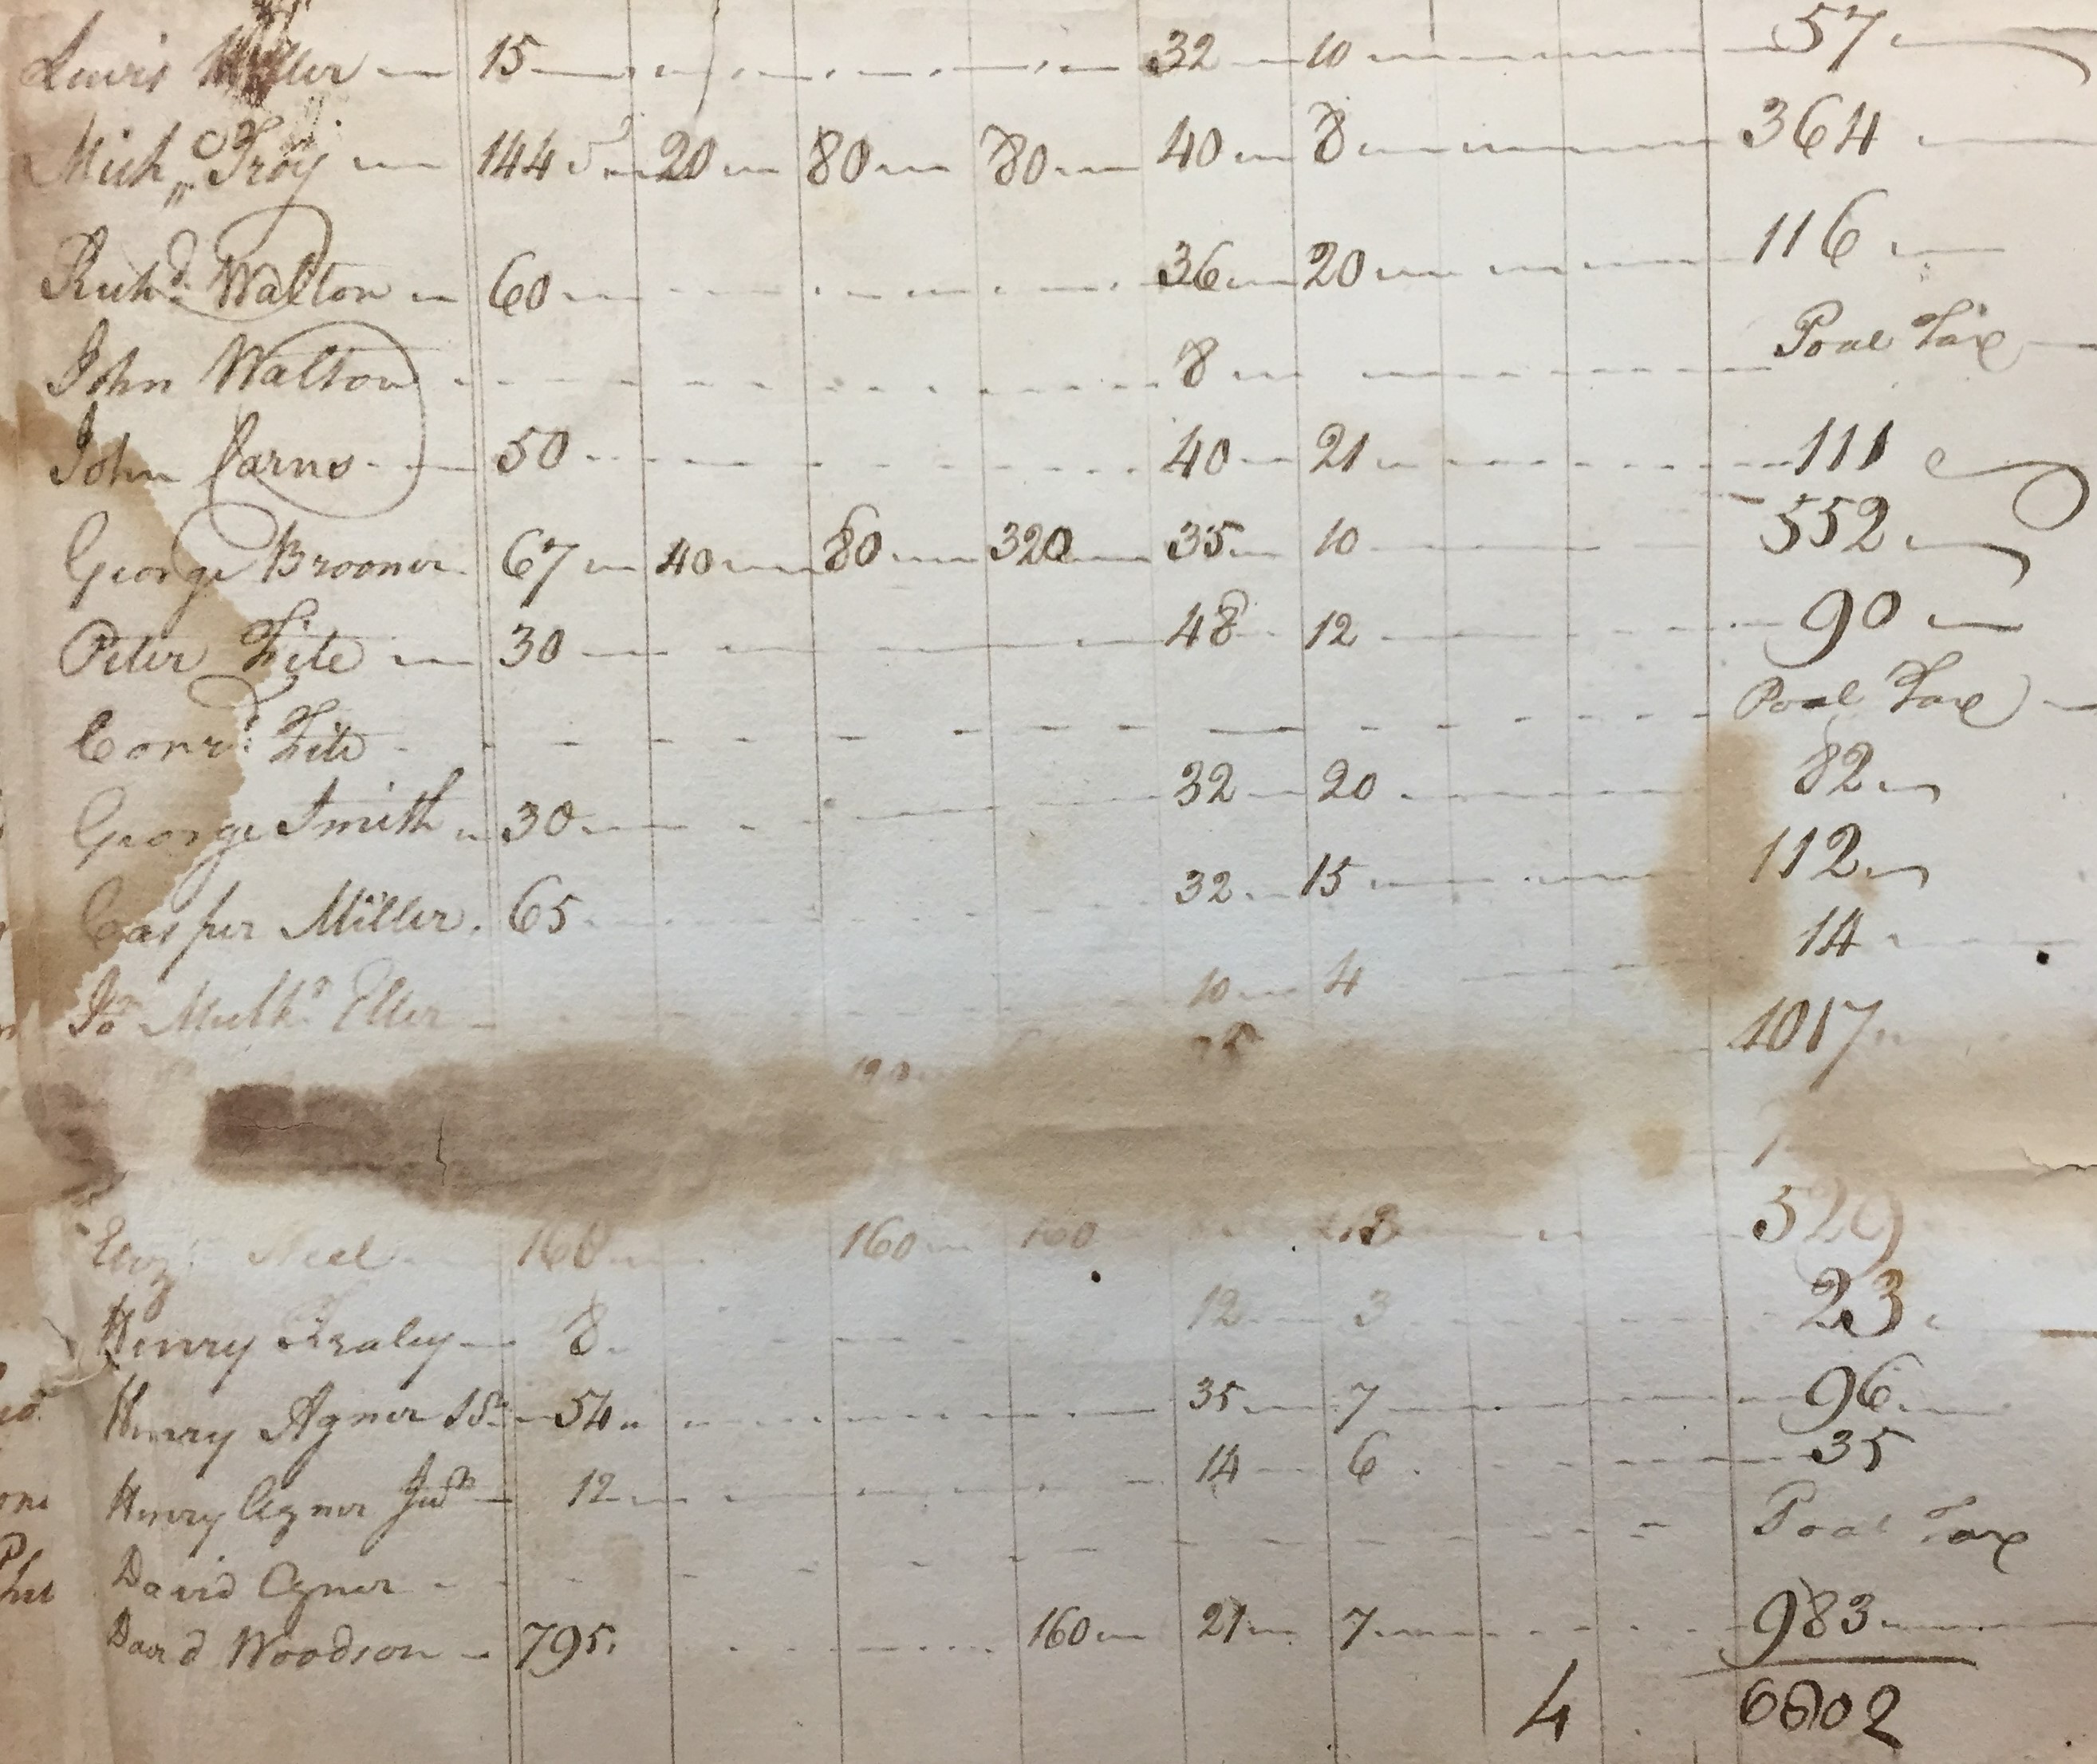 Lewis Miller 15 32 10 57
Mich. Troy 144 20 80 80 40 8 364
Richd. Walton 60 36 20 116
John Walton 8 Poal Tax
John Carns 50 40 21 111
George Brooner 67 40 80 320 35 10 552
Peter Lite 30 48 12 90
Conrd. Lite Poal Tax
George Smith 30 32 20 82
Casper Miller 65 32 15 112
Jno. Eller 10 4 14
1017
Neel 160 160 529
Henry Fraley 8 12 3 23
Henry Agner Sr. 54 35 7 96
Henry Agner Jur. 12 14 6 35
David Agner Poal Tax
David Woodson 795 160 21 7 983
4 6602